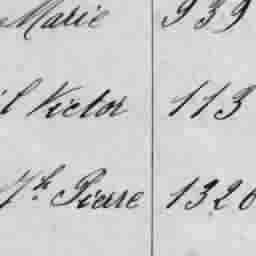 Marie 939
l Victor 113
h. Pierre 1320